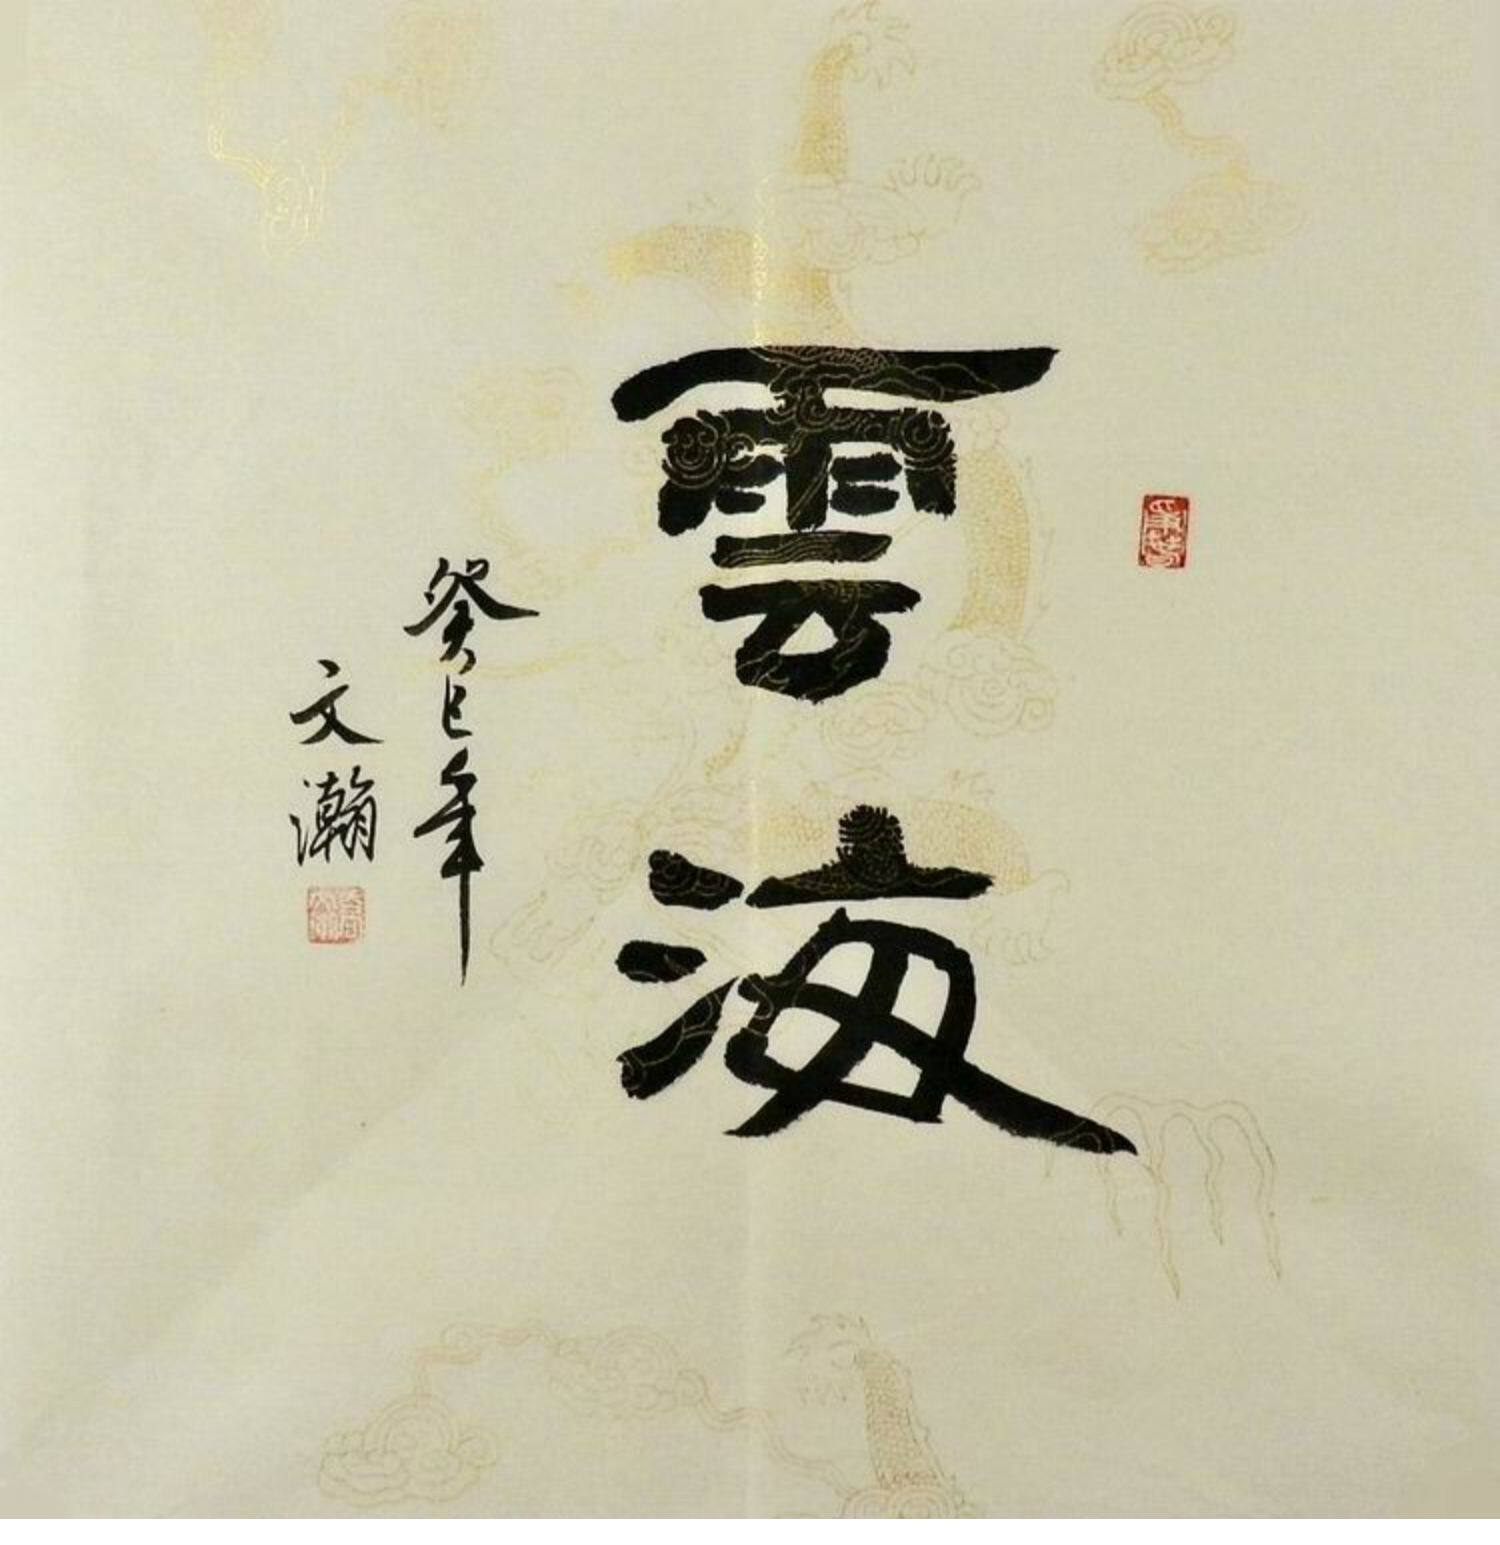 雲海
癸巳年
文瀚